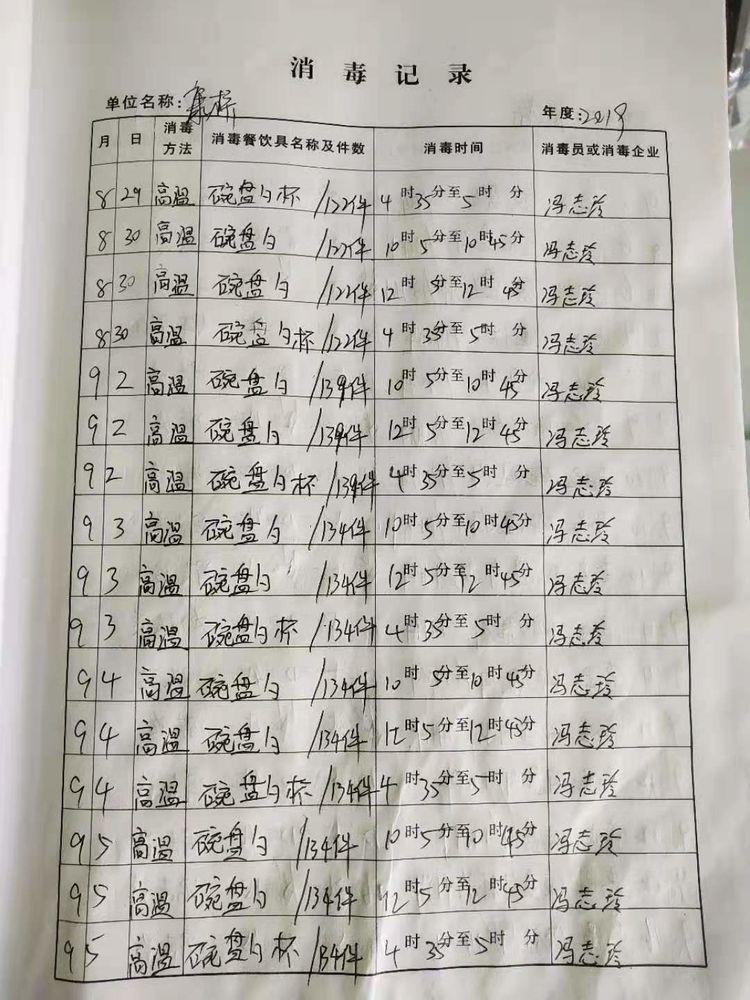 消毒记录
单位名称: 年度:2019
月 日 消毒方法 消毒餐饮具名称及件数 消毒时间 消毒员或消毒企业
8 29 高温 碗盘勺杯/122件 4时35分至5时 分 冯志玲
8 30 高温 碗盘勺/122件 10时5分至10时45分 冯志玲
8 30 高温 碗盘勺/122件 12时5分至12时45分 冯志玲
8 30 高温 碗盘勺杯/122件 4时35分至5时 分 冯志玲
9 2 高温 碗盘勺/139件 10时5分至10时45分 冯志玲
9 2 高温 碗盘勺/139件 12时5分至12时45分 冯志玲
9 2 高温 碗盘勺杯/139件 4时35分至5时 分 冯志玲
9 3 高温 碗盘勺/134件 10时5分至10时45分 冯志玲
9 3 高温 碗盘勺/134件 12时5分至12时45分 冯志玲
9 3 高温 碗盘勺杯/134件 4时35分至5时 分 冯志玲
9 4 高温 碗盘勺/134件 10时5分至10时45分 冯志玲
9 4 高温 碗盘勺/134件 12时5分至12时45分 冯志玲
9 4 高温 碗盘勺杯/134件 4时35分至5时 分 冯志玲
9 5 高温 碗盘勺/134件 10时5分至10时45分 冯志玲
9 5 高温 碗盘勺/134件 12时5分至12时45分 冯志玲
9 5 高温 碗盘勺杯/134件 4时35分至5时 分 冯志玲